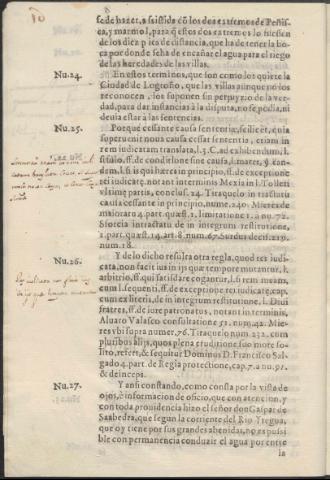 10
8
se de hazer, a fsistida cō los dos estremos de Peñis
ca, y marmol, para q̃ estos dos estremos lo fuessen
de los diez pies de distancia, que ha de tener la bo
ca por donde se ha de encañar el agua para el riego
de las heredades de las villas.
Nu.24.
En estos terminos, que son como los quiere la
Ciudad de Logroño, que las villas aunque no los
reconocen, los suponen sin perjuyzio de la ver-
dad, para dar instancias à la disputa, no se podia, ni
deuia estar a las sentencias.
Nu.25.
Porque cessante causa sententiæ, scilicet, quia
superuenit noua causa cessat sententia, etiam in
rem iudicatam translata, l. 3. C. ad exhibendum, l.
ff. de conditione sine causa, l. mater, y ean-
dem. l. si is qui hæres in principio, ff. de exceptione
rei iudicatę, notant interminis Mexia in l. Toleti
vltimę partis, conclus. 24. Tiraquelo in tractatu
causa cessante in principio, nume. 240. Mieres de
maioratu 4. part. quæst. 1. limitatione 1. a nu. 72.
Sforcia in tractatu de in integrum restitutione,
1. part. quæst. 14. art. 8. num. 67. Surdus decis. 219.
num. 18.
Nu.26.
Y de lo dicho resulta otra regla, quod res iudi-
cata, non facit ius in ijs quæ tempore mutantur, l.
arbitrio, ff. qui satisdare cogantur, l. si rem meam,
cum l. sequenti, ff. de exceptione rei iudicatę, cap.
cum ex literis, de in integrum restitutione, l. Diui
fratres, ff. de iure patronatus, notant in terminis,
Aluaro Valasco consultatione 51. num. 42. Mie-
res vbi supra numer. 76. Tiraquelo num. 232. cum
pluribus alijs, quos plena eruditione suo more so-
lito, refert, & sequitur Dominus D. Francisco Sal-
gado 4. part. de Regia protectione, cap. 7. a nu. 91.
& deinceps.
Nu.27.
Y ansi constando, como consta por la vista de
ojos, è informacion de oficio, que con atencion, y
con toda prouidencia hizo el señor don Gaspar de
Saabedra, que segun la corriente del Rio Iregua,
que oy tiene por sus grandes abenidas, no es possi
ble con permanencia conduzir el agua por entre
la